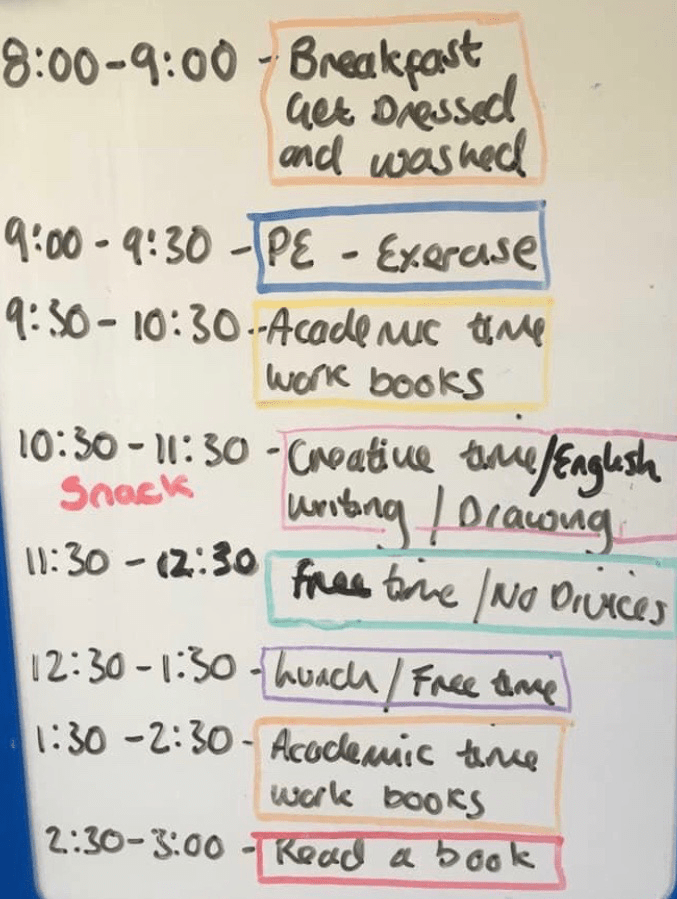 8:00-9:00 - Breakfast
Get Dressed
and washed
9:00 - 9:30 - PE - Exerase
9:30 - 10:30 - Academic time
work books
10:30 - 11:30 - Creative time/English
Snack writing / Drawing
11:30 - 12:30 free time / No Divices
12:30 - 1:30 - Lunch / Free time
1:30 - 2:30 - Academic time
work books
2:30 - 3:00 - Read a book